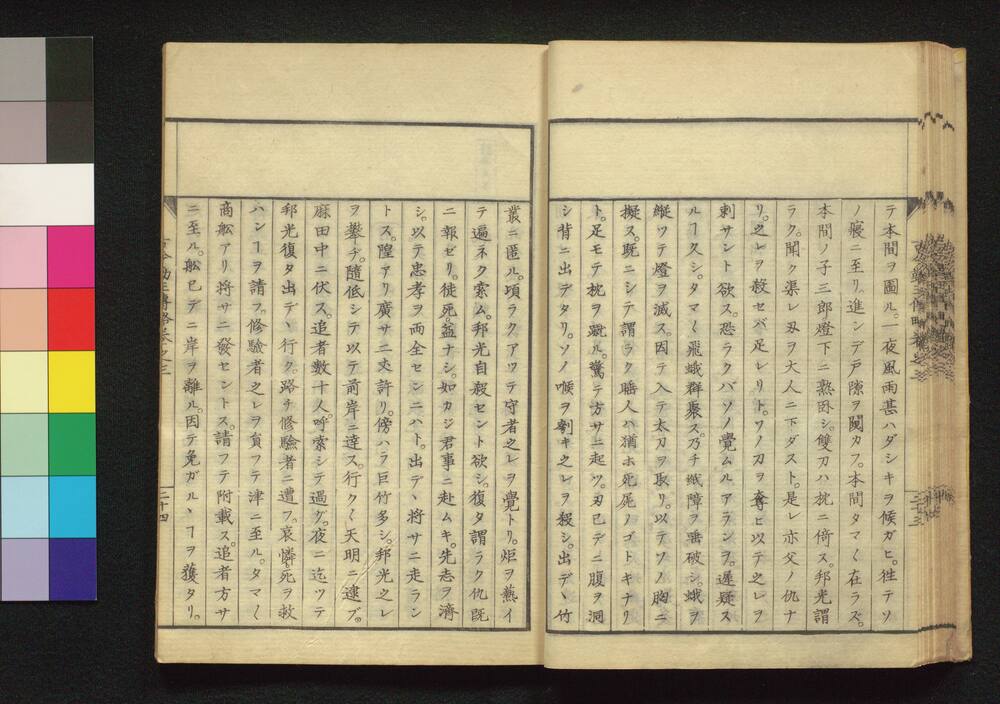 テ本間ヲ圖ル。一夜風雨甚ハダシキヲ候ガヒ。徃テソ
ノ寢ニ至リ。進ンデ戸隙ヲ闚カフ。本間タマ〱在ラズ。
本間ノ子三郎燈下ニ熟臥シ。雙刀ハ枕ニ倚ス。邦光謂
ラク。聞ク渠レ刃ヲ大人ニ下ダスト。是レ亦父ノ仇ナ
リ。之レヲ殺セバ足レリト。ソノ刀ヲ奪ヒ以テ之レヲ
刺サント欲ス。恐ラクバソノ覺ムルアランヲ。遲疑ス
ルヿ久シ。タマ〱飛蛾群聚ス。乃チ紙障ヲ舐破シ。蛾ヲ
縱ツテ燈ヲ滅ス。因テ入テ太刀ヲ取リ。以テソノ胸ニ
擬ス。既ニシテ謂ラク睡人ハ猶ホ死屍ノゴトキナリ
ト。足モテ枕ヲ蹴ル。驚テ方サニ起ツ。刃已デニ腹ヲ洞
シ背ニ出デタリ。ソノ喉ヲ刳キ之レヲ殺シ。出デヽ竹
叢ニ匿ル。頃ラクアツテ守者之レヲ覺トリ。炬ヲ爇イ
テ遍ネク索ム。邦光自殺セント欲シ。復タ謂ラク仇既
ニ報ゼリ。徒死益ナシ。如カジ君事ニ赴ムキ。先志ヲ濟
シ。以テ忠孝ヲ両全センニハト。出デヽ將サニ走ラン
トス。隍アリ廣サ二丈許リ。傍ハラ巨竹多シ。邦光之レ
ヲ攀ヂ。隨低シテ以テ前岸ニ達ス。行ク〱天明ニ逮ブ。
麻田中ニ伏ス。追者數十人。呼索シテ過グ。夜ニ迄ツテ
邦光復タ出デヽ行ク。路チ修驗者ニ遭フ。哀憐死ヲ救
ハンヿヲ請フ。修驗者之レヲ負フテ津ニ至ル。タマ〱
商舩アリ將サニ發セントス。請フテ附載ス。追者方サ
ニ至ル。舩已デニ岸ヲ離ル。因テ免ガルヽヿヲ獲タリ。
二十四